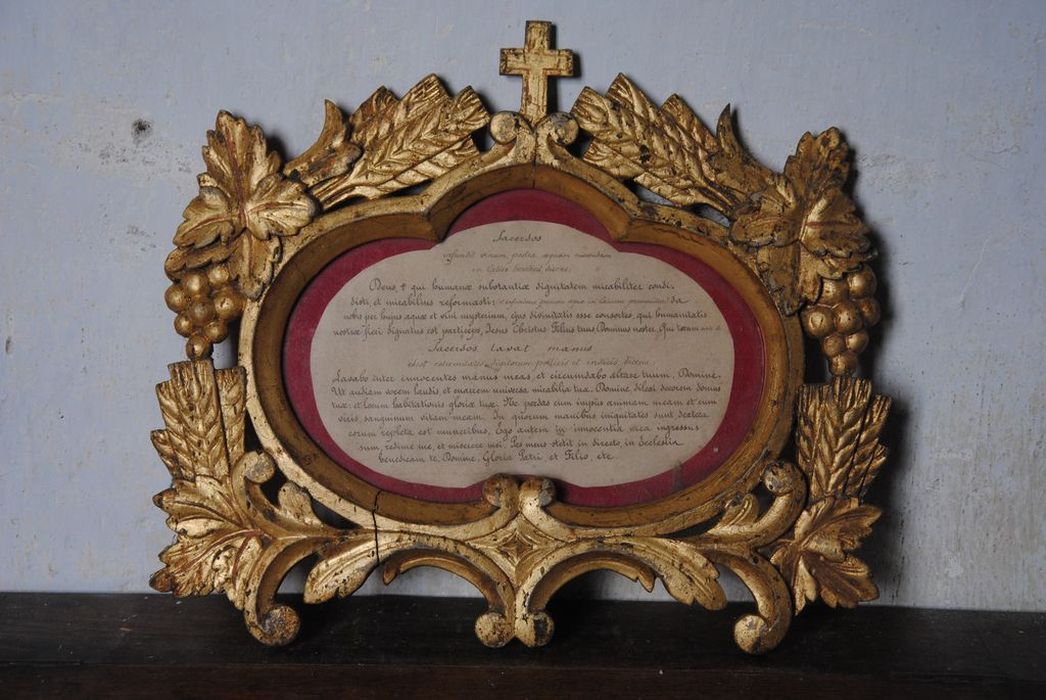 Sacersos
infundit vinum, postea aquam miscendam
in Calice dicens:
Deus, + qui humanæ substantiæ dignitatem mirabiliter condi-
disti, et mirabilius reformasti: da
nobis per hujus aquæ et vini mysterium, ejus divinitatis esse consortes, qui humanitatis
nostræ fieri dignatus est particeps, Jesus Christus Filius tuus Dominus noster. Qui tecum
Sacersos lavat manus
digitorum pollicis et indicis, dicens
Lavabo inter innocentes manus meas, et circumdabo altare tuum, Domine.
Ut audiam vocem laudis, et enarrem universa mirabilia tua. Domine dilexi decorem domus
tuæ: et locum habitationis gloriæ tuæ. Ne perdas cum impiis animam meam et cum
viris sanguinum vitam meam. In quorum manibus iniquitates sunt dextera
eorum repleta est muneribus. Ego autem in innocentia mea ingressus
sum, redime me, et miserere mei. Pes meus stetit in directo, in Ecclesiis
benedicam te, Domine. Gloria Patri et Filio, etc.